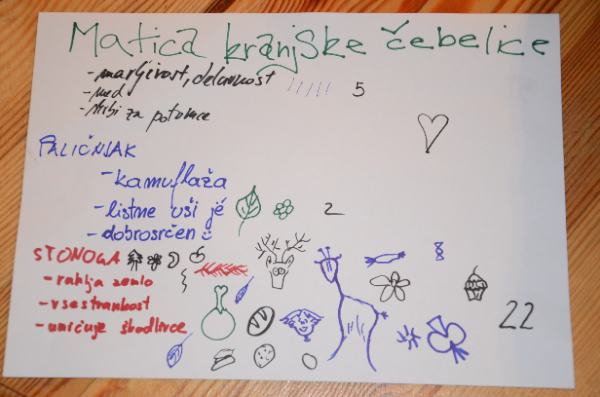 Matica kranjske čebelice
- marljivost, delavnost
- med
- skrbi za potomce
5
PALIČNJAK
- kamuflaža
- listne uši jé
- dobrosrčen
2
STONOGA
- rahlja zemlo
- vsestranhost
- uničuje škodlivce
22